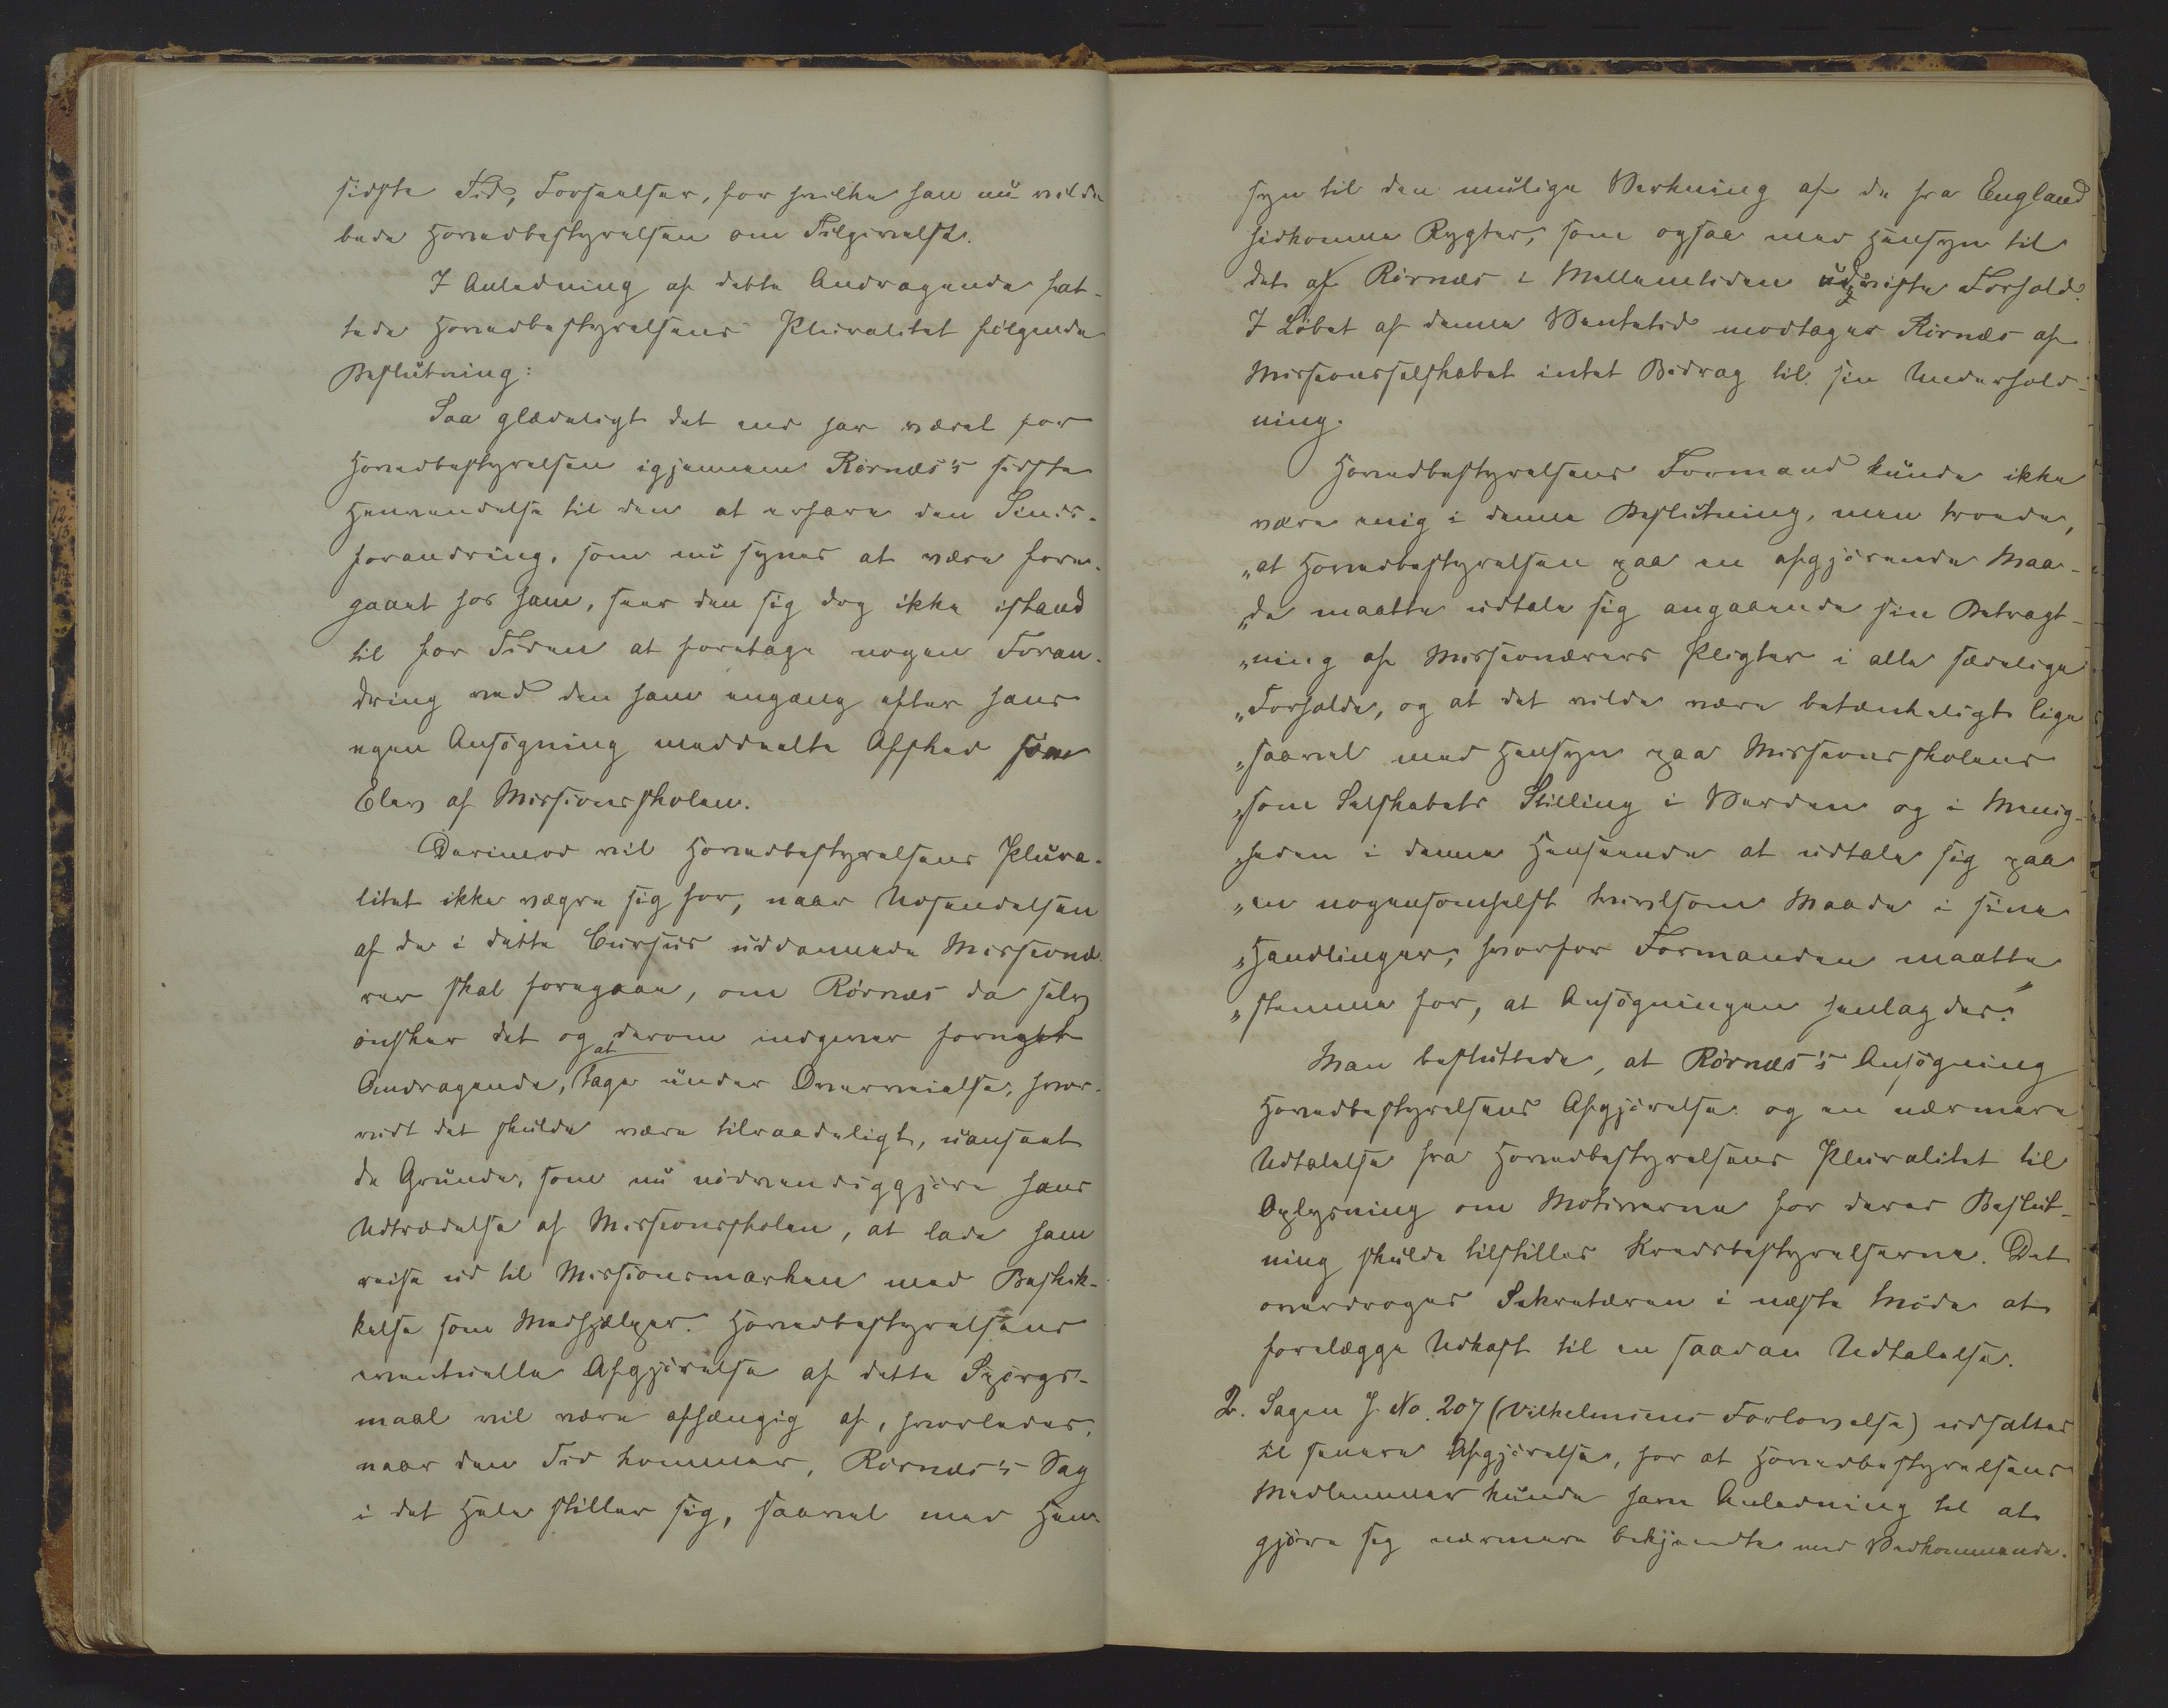 sidste Tid, Forseelser, for hvilke han nu vilde
bede Hovedbestyrelsen om Tilgivelse.
I Anledning af dette Andragende fat-
tede Hovedbestyrelsens Pluralitet følgende
Beslutning:
Saa glædeligt det end har været for
Hovedbestyrelsen igjennem Rörnæs's sidste
Henvendelse til den at erfare den Sinds-
forandring, som nu synes at være fore-
gaaet hos ham, seer den sig dog ikke istand
til for Tiden at foretage nogen Foran-
dring ved den ham engang efter hans
egen Ansögning meddeelte Afsked som
Elev af Missionsskolen.
Derimod vil Hovedbestyrelsens Plura-
litet ikke vægre sig for, naar Udsendelsen
af de i dette Cursus uddannede Missionæ-
rer skal foregaae, om Rörnæs da selv
önsker det og derom indgiver fornyet
Andragende, at tage under Overveielse, hvor-
vidt det skulde være tilraadeligt, uanseet
de Grunde, som nu nödvendiggjöre hans
Udtrædelse af Missionsskolen, at lade ham
reise ud til Missionsmarken med Beskik-
kelse som Medhjælper. Hovedbestyrelsens
eventuelle Afgjörelse af dette Spörgs-
maal vil være afhængig af, hvorledes,
naar den Tid kommer, Rörnæs's Sag
i det Hele stiller sig, saavel med Hen-
syn til den mulige Virkning af de fra England
hidkomne Rygter, som ogsaa med Hensyn til
det af Rörnæs i Mellemtiden udviste Forhold.
I Löbet af denne Ventetid modtager Rörnæs af
Missionsselskabet intet Bidrag til sin Underhold-
ning.
Hovedbestyrelsens Formand kunde ikke
være enig i denne Beslutning, men troede,
„at Hovedbestyrelsen paa en afgjörende Maa-
„de maatte udtale sig angaaende sin Betragt-
„ning af Missionærers Pligter i alle sædelige
„Forholde, og at det vilde være betænkeligt lige
„saavel med Hensyn paa Missionsskolens
„som Selskabets Stilling i Verden og i Menig-
„heden i denne Henseende at udtale sig paa
„en nogensomhelst tvivlsom Maade i sine
„Handlinger, hvorfor Formanden maatte
„stemme for, at Ansögningen henlagdes."
Man besluttede, at Rörnæs's Ansögning
Hovedbestyrelsens Afgjörelse og en nærmere
Udtalelse fra Hovedbestyrelsens Pluralitet til
Oplysning om Motiverne for deres Beslut-
ning skulde tilstilles Kredsbestyrelserne. Det
overdroges Sekretæren i næste Möde at
forelægge Udkast til en saadan Udtalelse.
2. Sagen J. No. 207 (Vilhelmsens Forlovelse) udsattes
til senere Afgjörelse, for at Hovedbestyrelsens
Medlemmer kunde have Anledning til at
gjöre sig nærmere bekjendte med Vedkommende.